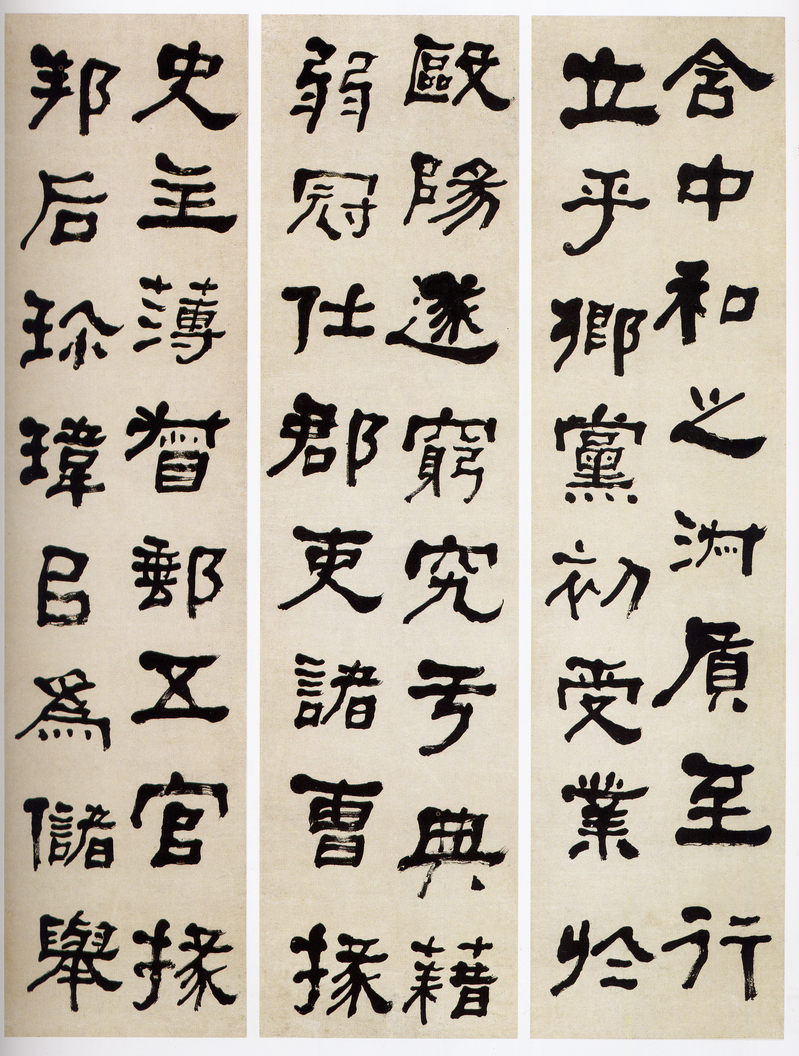 含中和之淋質至行
立乎鄉黨初受業於
毆陽遂窮究亏典藉
弱冠仕郡吏諸曹掾
史主薄督郵五官掾
邦后珎瑋㠯為儲舉